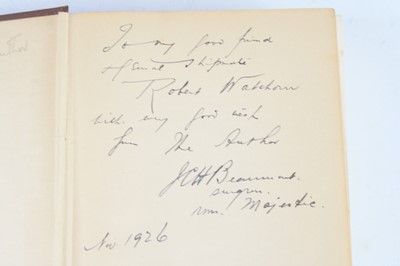 To my good friend
& genial shipmate
Robert Watchorn
with every good wish
from The Author
JCH Beaumont.
surgeon.
R.M.S. Majestic.
Nov 1926